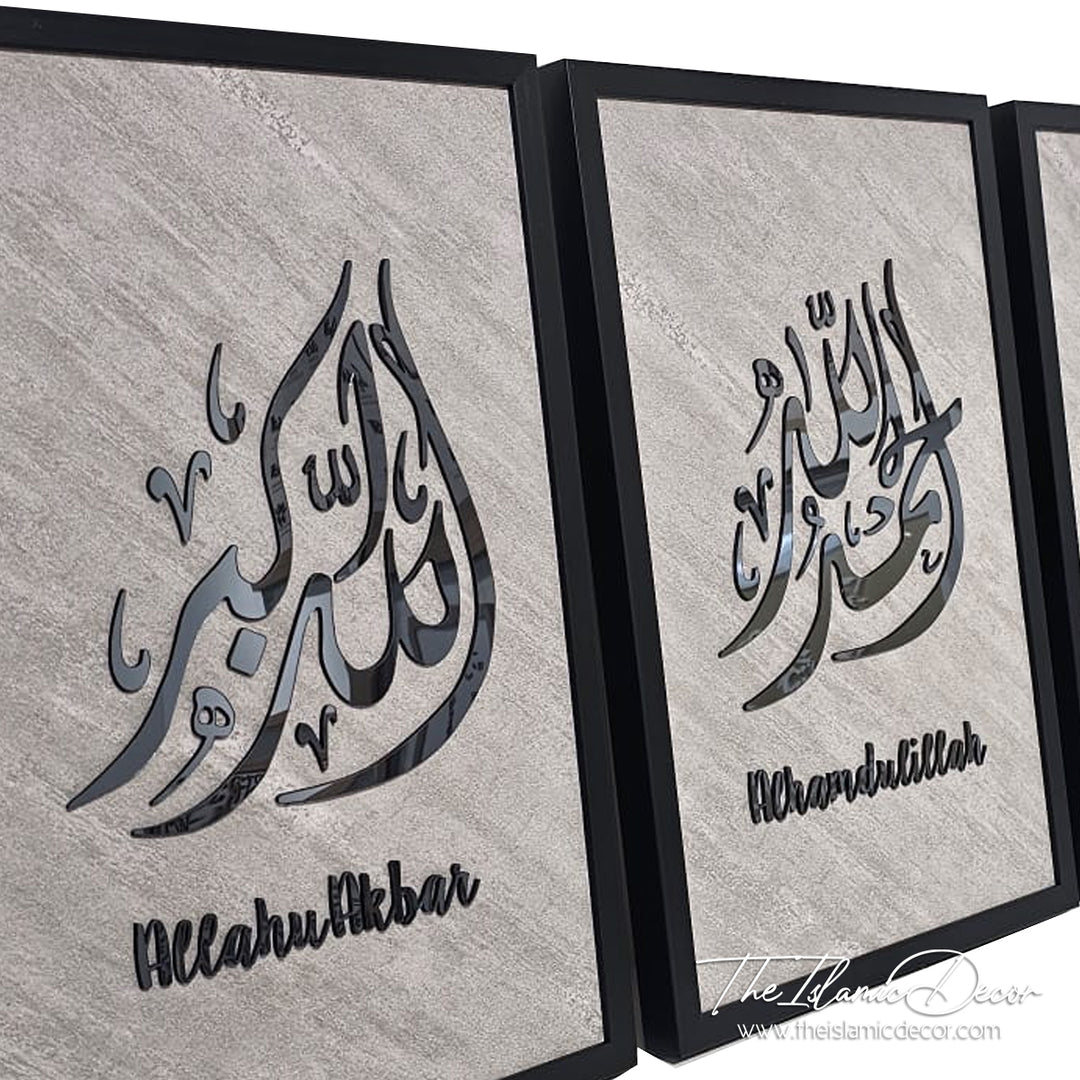 الله أكبر
Allahu Akbar
الحمد لله
Alhamdulillah
The Islamic Decor
www.theislamicdecor.com